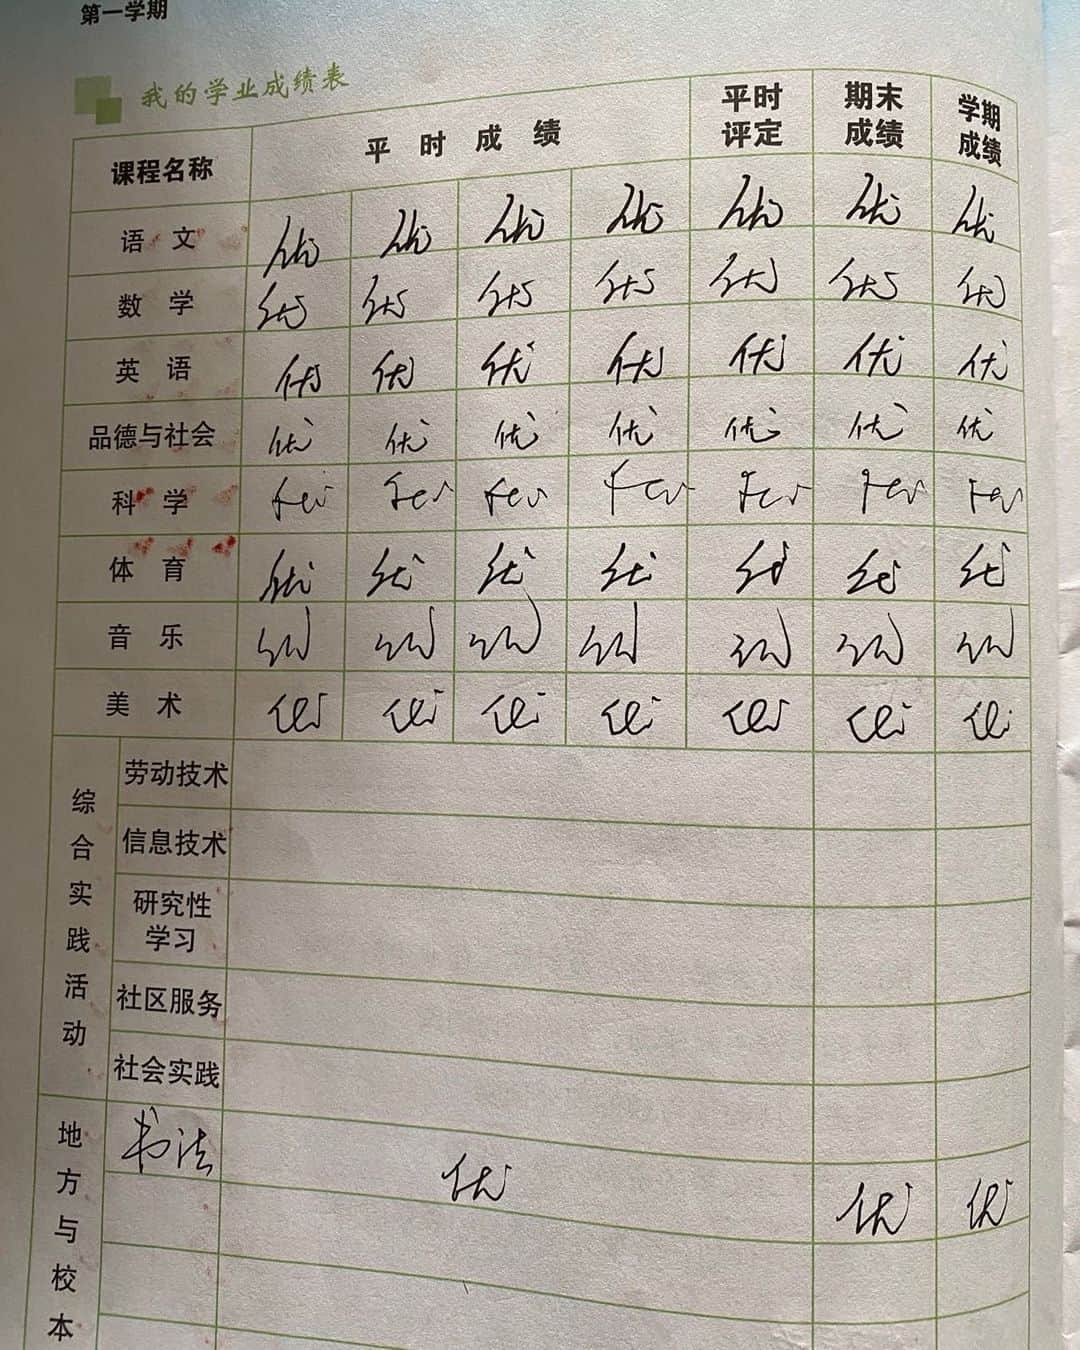 第一学期
我的学业成绩表
课程名称 平时成绩 平时评定 期末成绩 学期成绩
语文 优 优 优 优 优 优 优
数学 优 优 优 优 优 优 优
英语 优 优 优 优 优 优 优
品德与社会 优 优 优 优 优 优 优
科学 优 优 优 优 优 优 优
体育 优 优 优 优 优 优 优
音乐 优 优 优 优 优 优 优
美术 优 优 优 优 优 优 优
综合实践活动
劳动技术
信息技术
研究性学习
社区服务
社会实践
地方与校本
书法 优 优 优